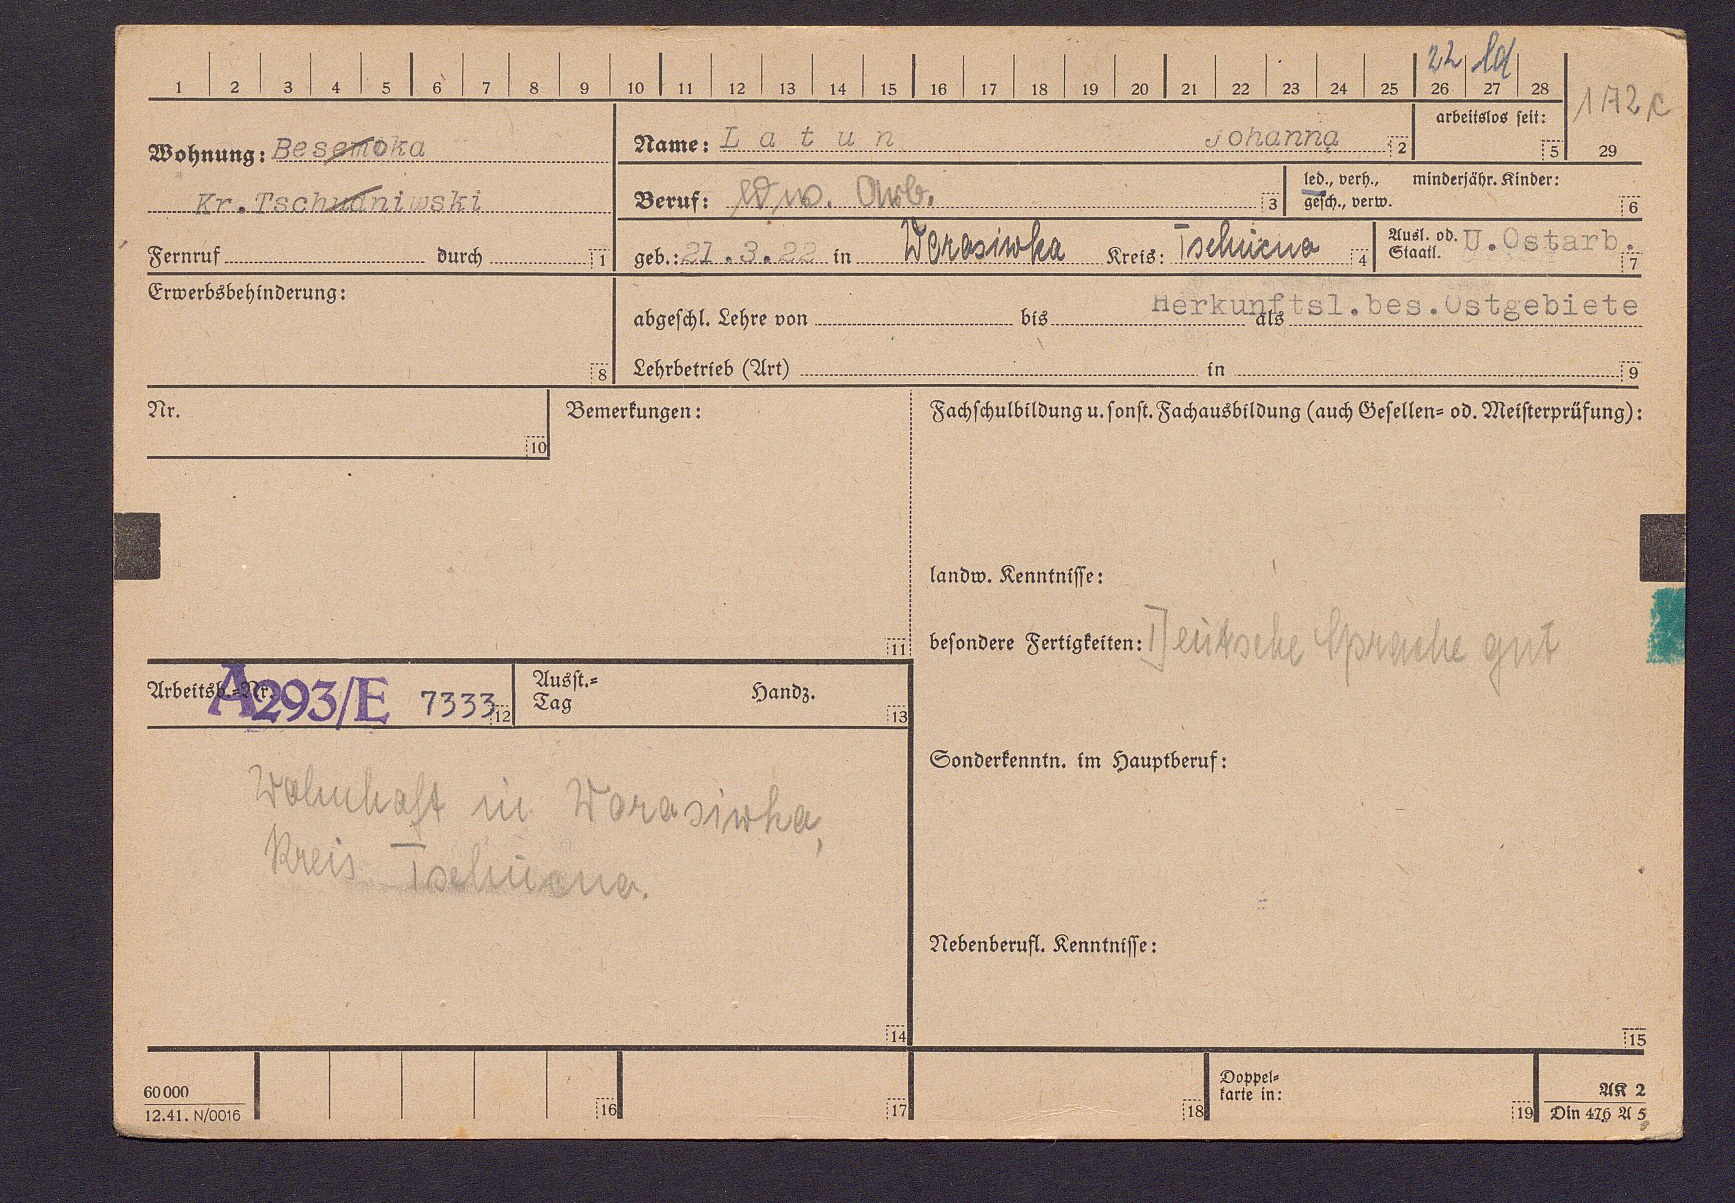 22 ld
1 2 3 4 5 6 7 8 9 10 11 12 13 14 15 16 17 18 19 20 21 22 23 24 25 26 27 28
172 c
29
Wohnung: Besemoka
Kr.Tschudniwski
Fernruf durch 1
Name: Latun Johanna 2
arbeitslos seit: 5
Beruf: ldw. Arb. 3
led., verh., gesch., verw. minderjähr. Kinder: 6
geb.: 21.3.22 in Worasiwka Kreis: Tschucno 4
Ausl. od. Staatl. U.Ostarb. 7
Erwerbsbehinderung: 8
Herkunftsl.bes.Ostgebiete
abgeschl. Lehre von bis als
Lehrbetrieb (Art) in 9
Nr. 10
Bemerkungen: 11
Fachschulbildung u. sonst. Fachausbildung (auch Gesellen- od. Meisterprüfung):
landw. Kenntnisse:
besondere Fertigkeiten: Deutsche Sprache gut
Arbeitsb.-Nr. A293/E 7333 12
Ausst.-Tag Handz. 13
Wohnhaft in Worasiwka,
Kreis Tschucno.
14
Sonderkenntn. im Hauptberuf:
Nebenberufl. Kenntnisse:
15
60 000
12.41. N/0016
16 17 18
Doppelkarte in: 19
AK 2
Din 476 A 5